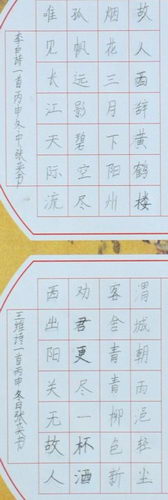 故人西辞黄鹤楼
烟花三月下阳州
孤帆远影碧空尽
唯见长江天际流
李白诗一首丙申冬
渭城朝雨浥轻尘
客舍青青柳色新
劝君更尽一杯酒
西出阳关无故人
王维诗一首丙申冬日张英书